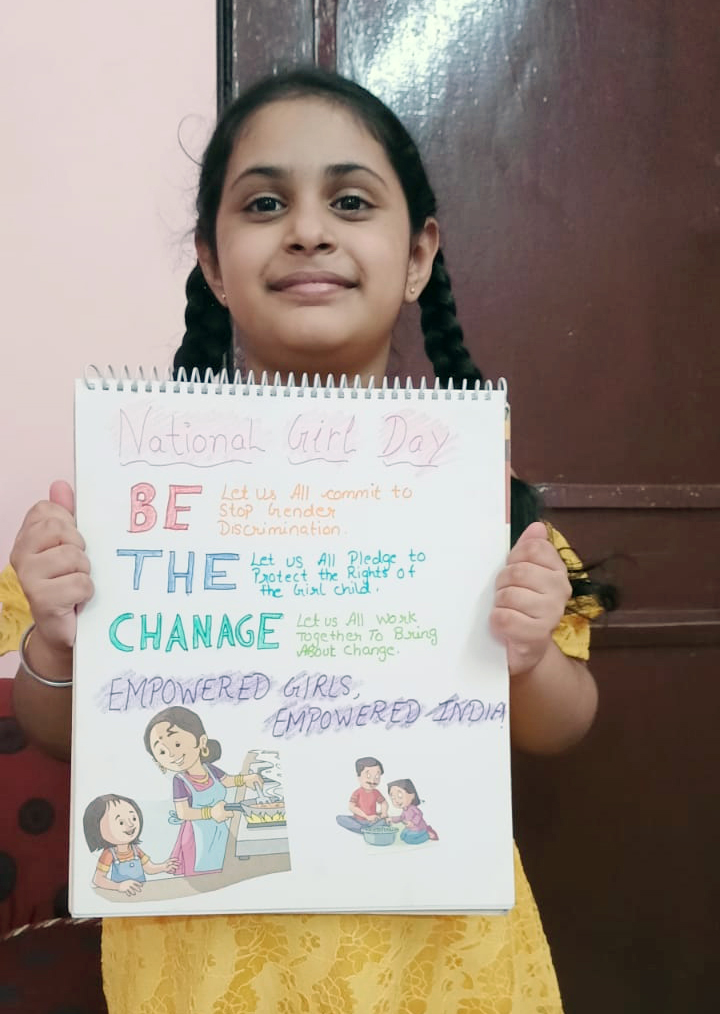 National Girl Day
BE
Let us All commit to
Stop Gender
Discrimination.
THE
Let us All Pledge to
Protect the Rights of
the Girl child.
CHANAGE
Let us All Work
Together To Bring
About Change.
EMPOWERED GIRLS,
EMPOWERED INDIA